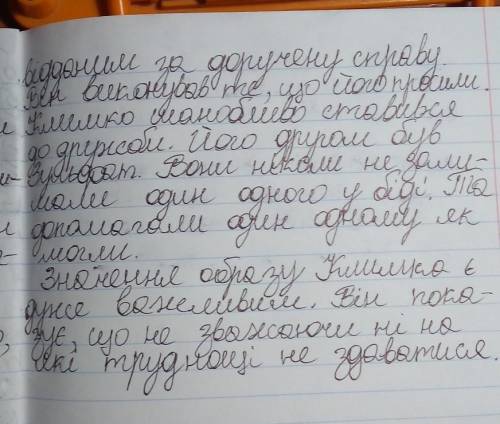 відданим за доручену справу.
Він виконував те, що його просили.
Климко шанобливо ставився
до дружби. Його другом був
Зульфат. Вони ніколи не зали-
шали один одного у біді. Та
допомагали один одному як
могли.
Значення образу Климка є
дуже важливим. Він пока-
зує, що не зважаючи ні на
які труднощі не здаватися.